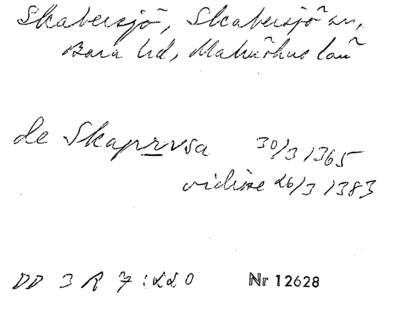 Skabersjö, Skabersjö sn,
Bara hd, Malmöhus län
de Skaprvsa 30/3 1365
vidisse 26/3 1383
DD 3 R 7:220 Nr 12628